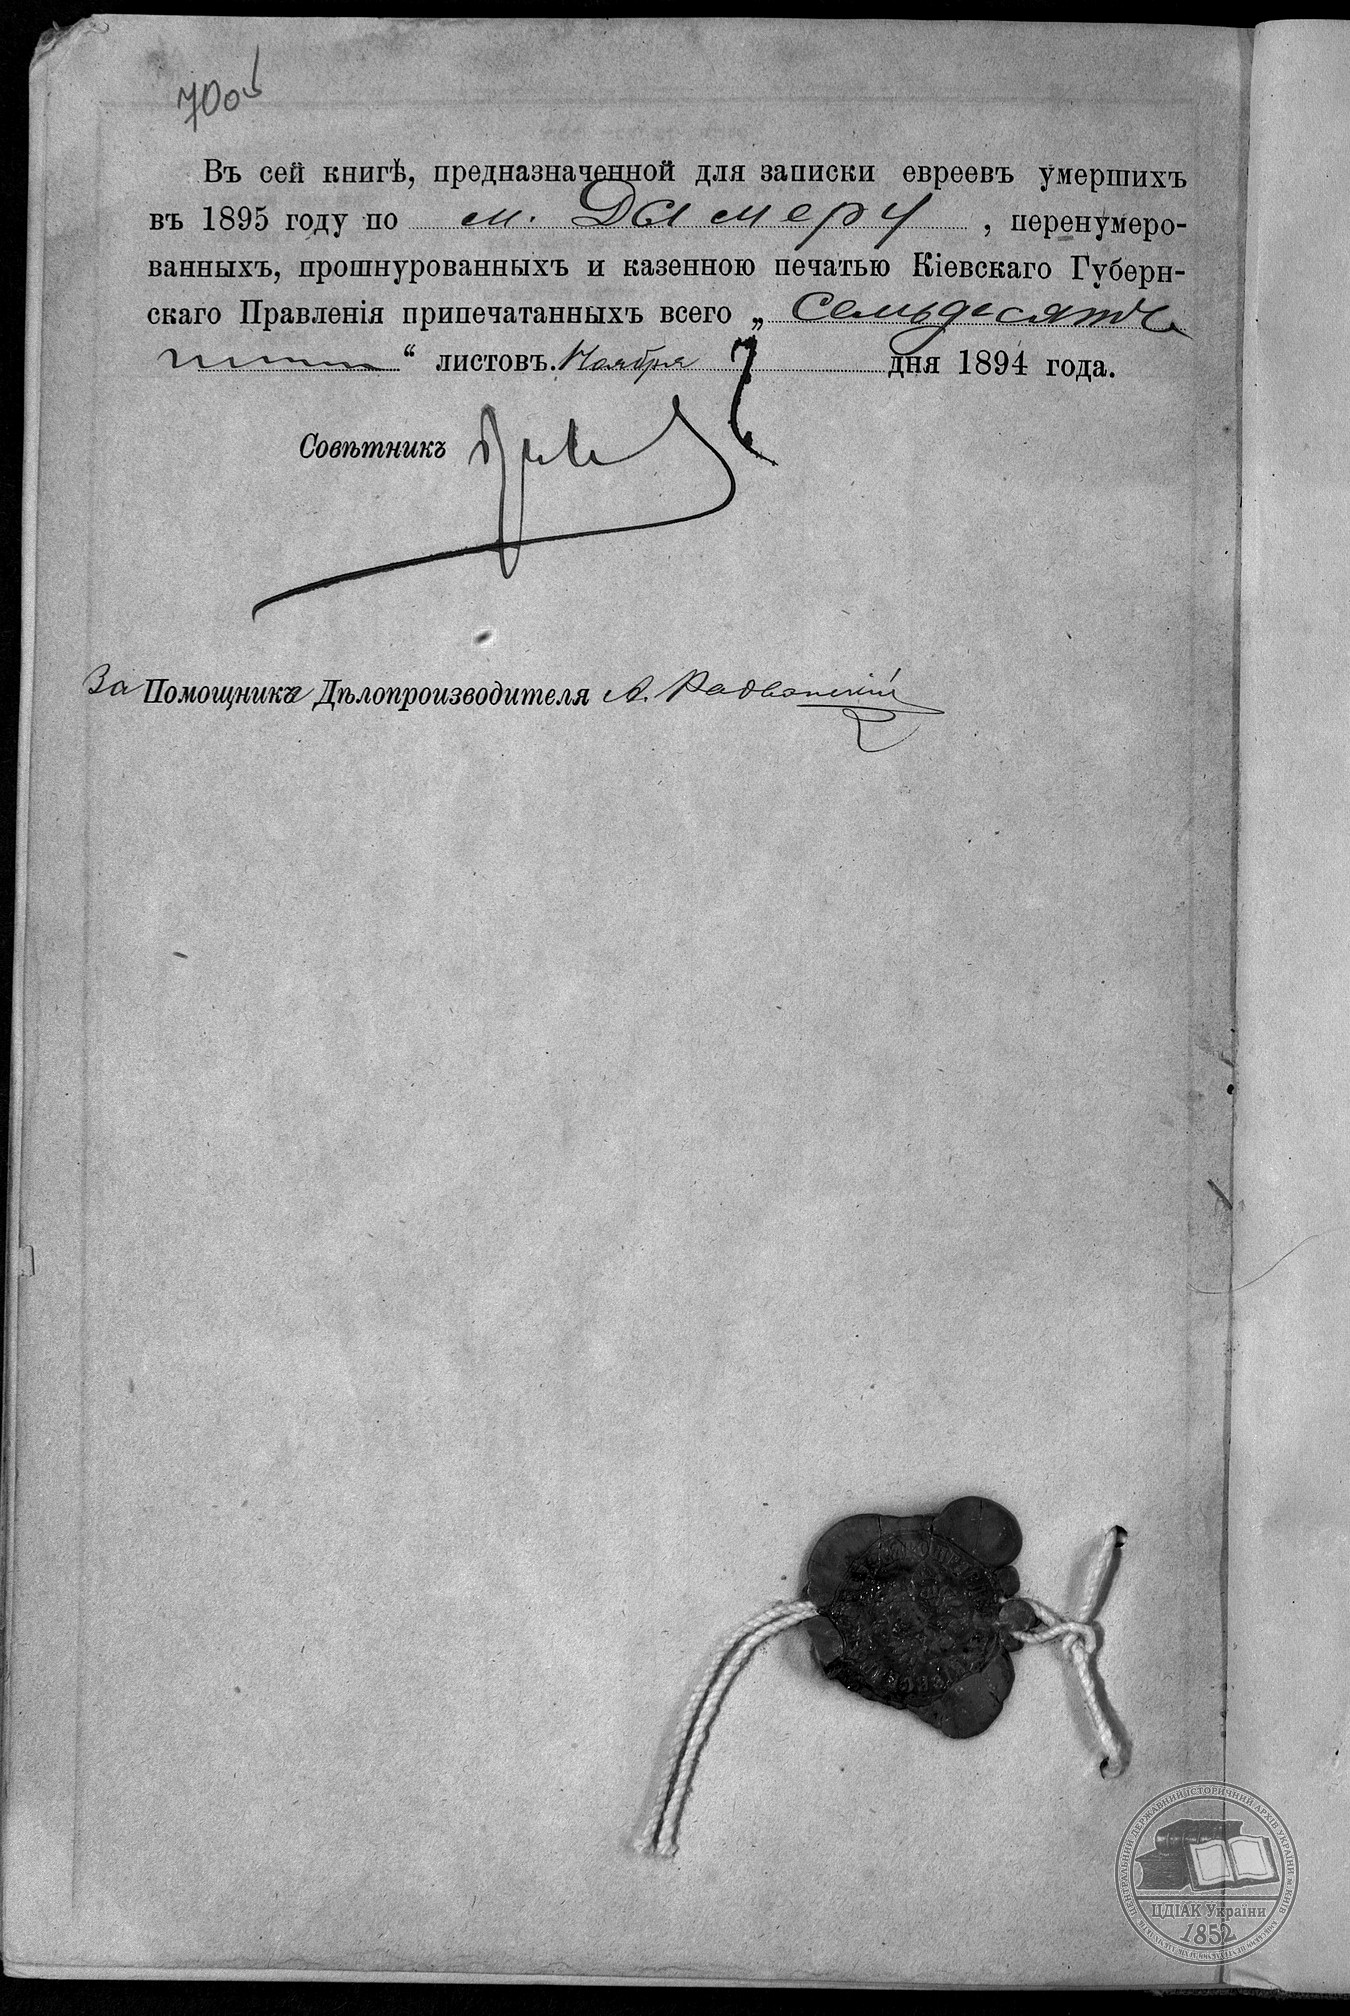 700
Въ сей книгѣ, предназначенной для записки евреевъ умершихъ
въ 1895 году по м. Дымеру, перенумеро-
ванныхъ, прошнурованныхъ и казенною печатью Кіевскаго Губерн-
скаго Правленія припечатанныхъ всего „ семьдесятъ
“ листовъ. Ноября 7 дня 1894 года.
Совѣтникъ
За Помощника Дѣлопроизводителя А. Радванскій
ЦЕНТРАЛЬНИЙ ДЕРЖАВНИЙ ІСТОРИЧНИЙ АРХІВ УКРАЇНИ м. КИЇВ
ЦДІАК України
1852